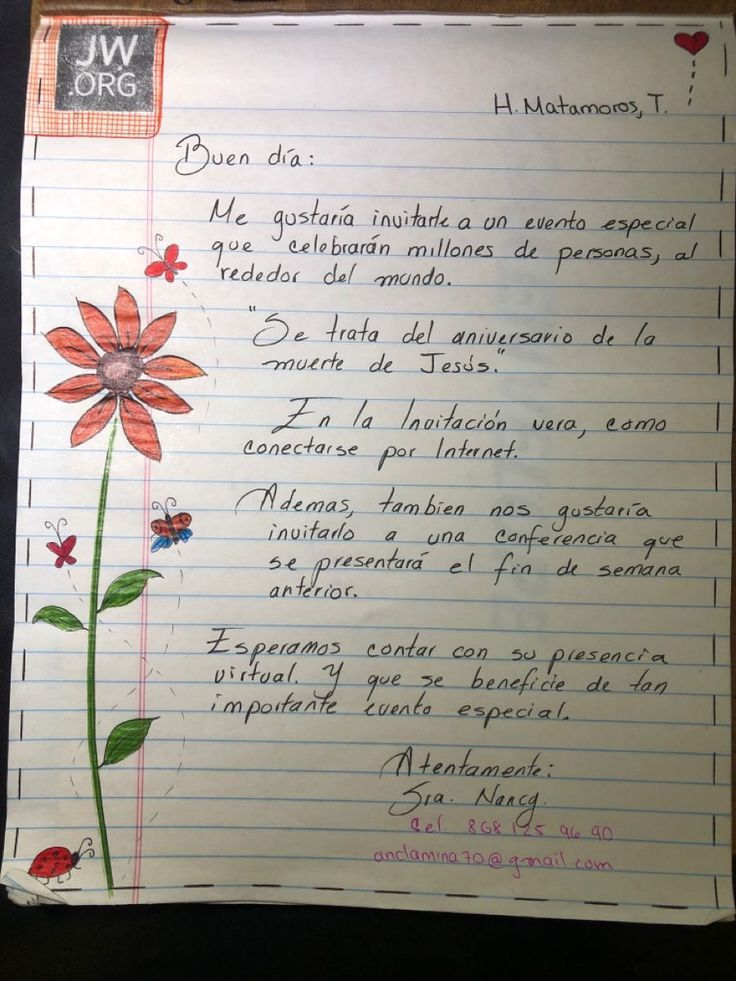 JW
.ORG
H. Matamoros, T.
Buen día:
Me gustaría invitarle a un evento especial
que celebrarán millones de personas, al
rededor del mundo.
"Se trata del aniversario de la
muerte de Jesús."
En la Invitación vera, como
conectarse por Internet.
Ademas, tambien nos gustaría
invitarlo a una conferencia que
se presentará el fin de semana
anterior.
Esperamos contar con su presencia
virtual. Y que se beneficie de tan
importante evento especial.
Atentamente:
Sra. Nancy.
Cel. 868 125 96 90
anclamina70@gmail.com